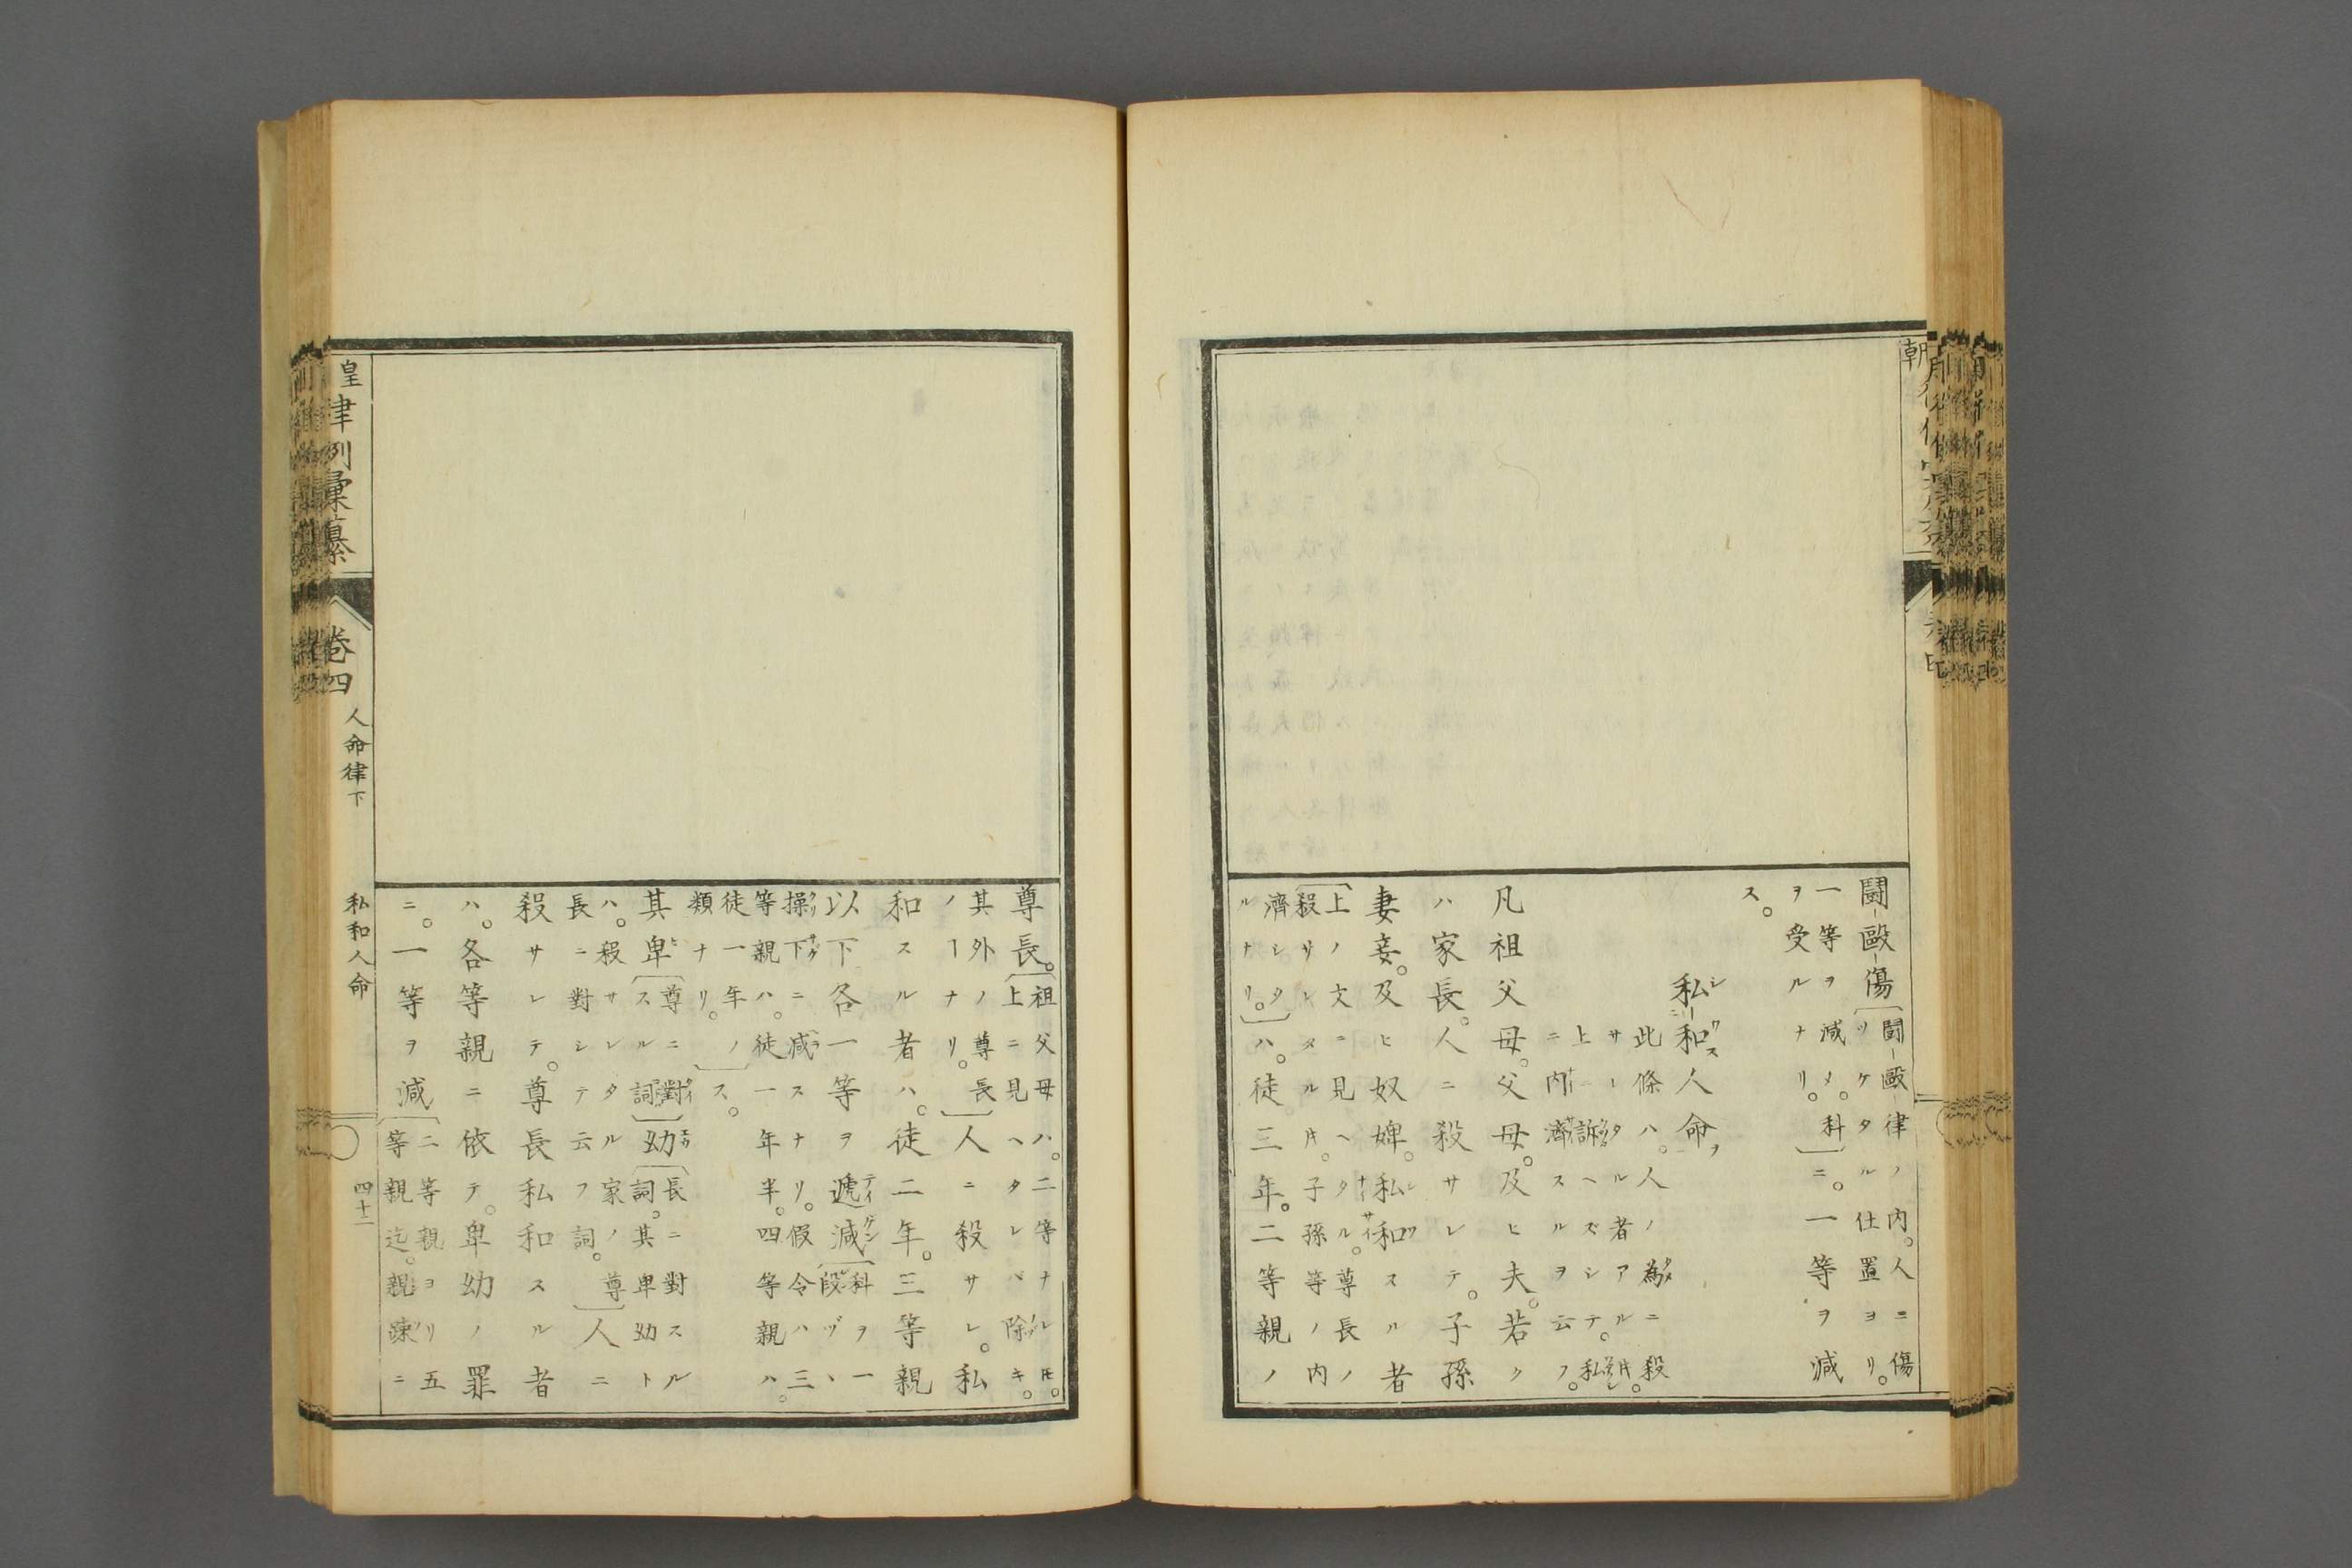 闘歐傷〔闘歐律ノ内。人ニ傷
ツケタル仕置ヨリ。
一等ヲ減メ。科〕ニ。一等ヲ減
ヲ受ルナリ。
ス。
私和人命
此條ハ。人ノ為ニ殺
サータル者アルニ
訴ヘズシテ。私
上ニ内濟スルヲ云フ。
凡祖父母。父母。及ヒ夫。若ク
ハ家長。人ニ殺サレテ。子孫
妻妾。及ヒ奴婢。私和スル者
〔上ノ文ニ見ヘタル。尊長ノ
殺サレタル片。子孫等ノ内
濟シタルナリ。〕ハ。徒三年。二等親ノ
尊長。〔祖父母ハ。二等ナレ𪜈。
上ニ見ヘタレバ除キ。
其外ノ尊長
ノヿナリ。〕人ニ殺サレ。私
和スル者ハ。徒二年。三等親
以下各一等ヲ遞減〔科ヲ一
段ヅヽ
操下ニ減スナリ。假令ハ三
等親ハ。徒一年半。四等親ハ。
徒一年ノ
類ナリ。〕ス。
其卑〔尊ニ對
スル詞〕幼〔長ニ對スル
詞。其卑幼ト
ハ。殺サレタル家ノ尊
長ニ對シテ云フ詞。〕人ニ
殺サレテ。尊長私和スル者
ハ。各等親ニ依テ。卑幼ノ罪
ニ。一等ヲ減〔二等親ヨリ五
等親迄。親疎ニ
皇
律例彙纂
卷四
人命律下
私和人命
四十二
朝